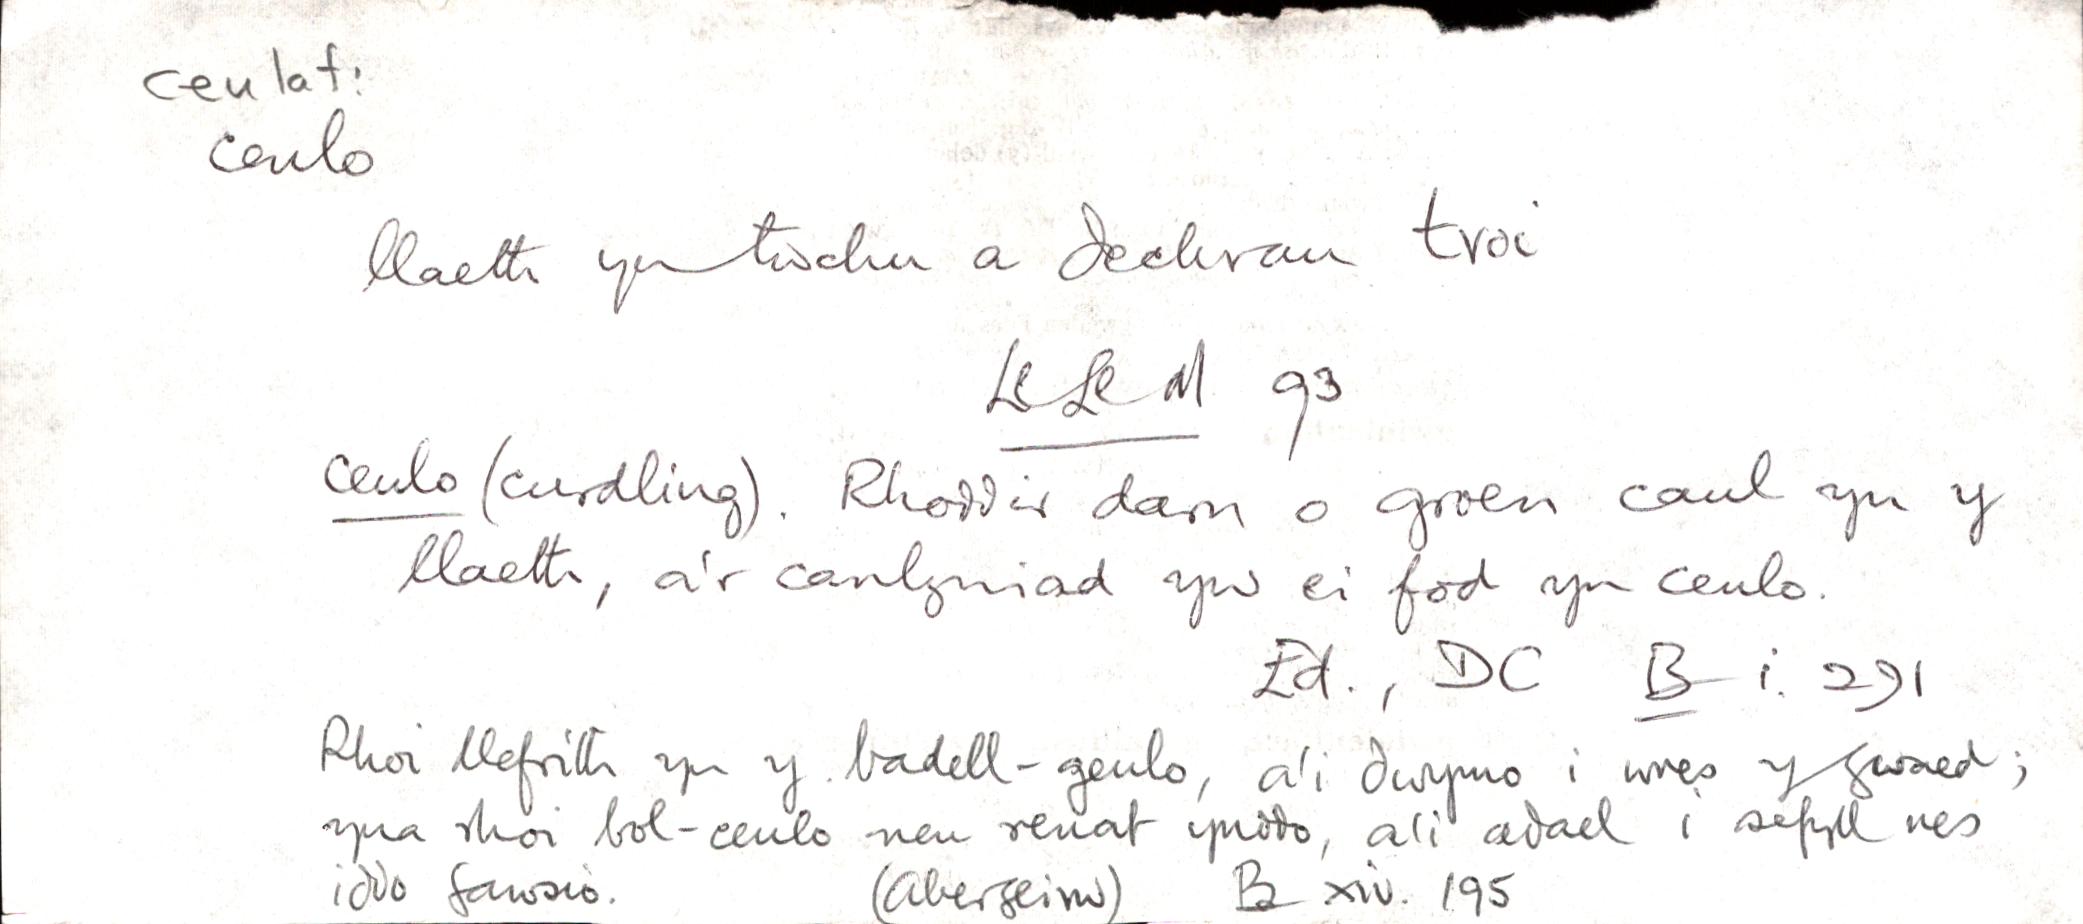 ceulaf:
ceulo
llaeth yn twchu a ðechrau troi
LlLlM 93
ceulo (curdling). Rhoððir darn o groen caul yn y
llaeth, a'r canlyniad yw ei fod yn ceulo.
Ed., DC B i. 291
Rhoi llefrith yn y badell-geulo, a'i ðwymo i wres y gwaed;
yna rhoi bol-ceulo neu renat ynððo, a'i aðael i sefyll nes
iððo gawsio. (Abergeirw) B xiv. 195